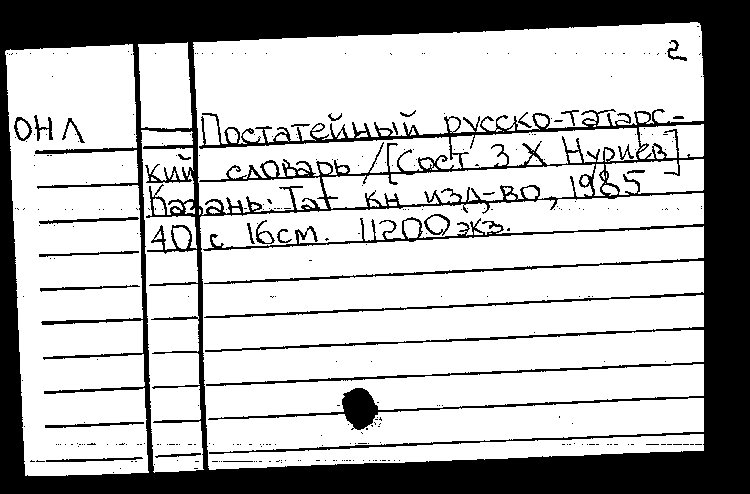 2
ОНЛ — Постатейный русско-татарс-
кий словарь /[Сост. З Х Нуриев].
Казань: Тат кн изд-во, 1985
40 с 16см. 11200 экз.